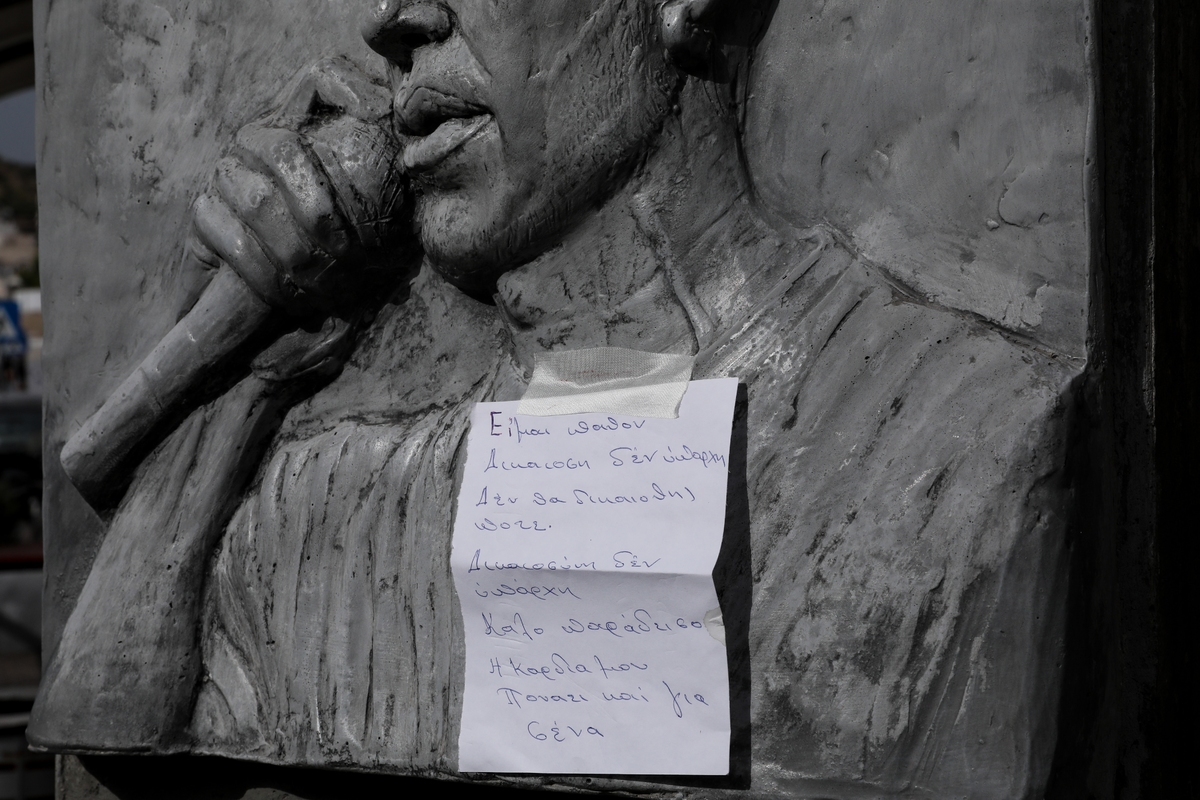 Είμαι παθον
Δικαιοση δέν ύπάρχη
Δέν θα δικαιοθης
ποτε.
Δικαιοσύνη δέν
ύπάρχη
Καλο παράδεισο
Η Καρδια μου
Πονατι και για
σένα